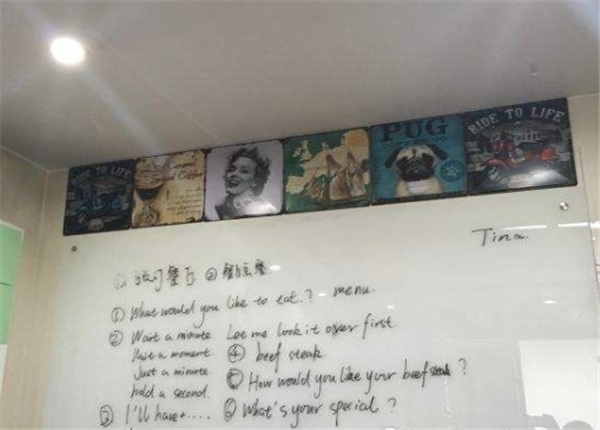 RIDE TO LIFE
Coffee
PUG
RIDE TO LIFE
Tina
① 餐厅 ②
① What would you like to eat.? menu.
② Wait a minute Let me look it over first.
Wait a moment ④ beef steak
Just a minute ⑤ How would you like your beef steak ?
hold a second.
③ I'll have.... ⑥ What's your special ?